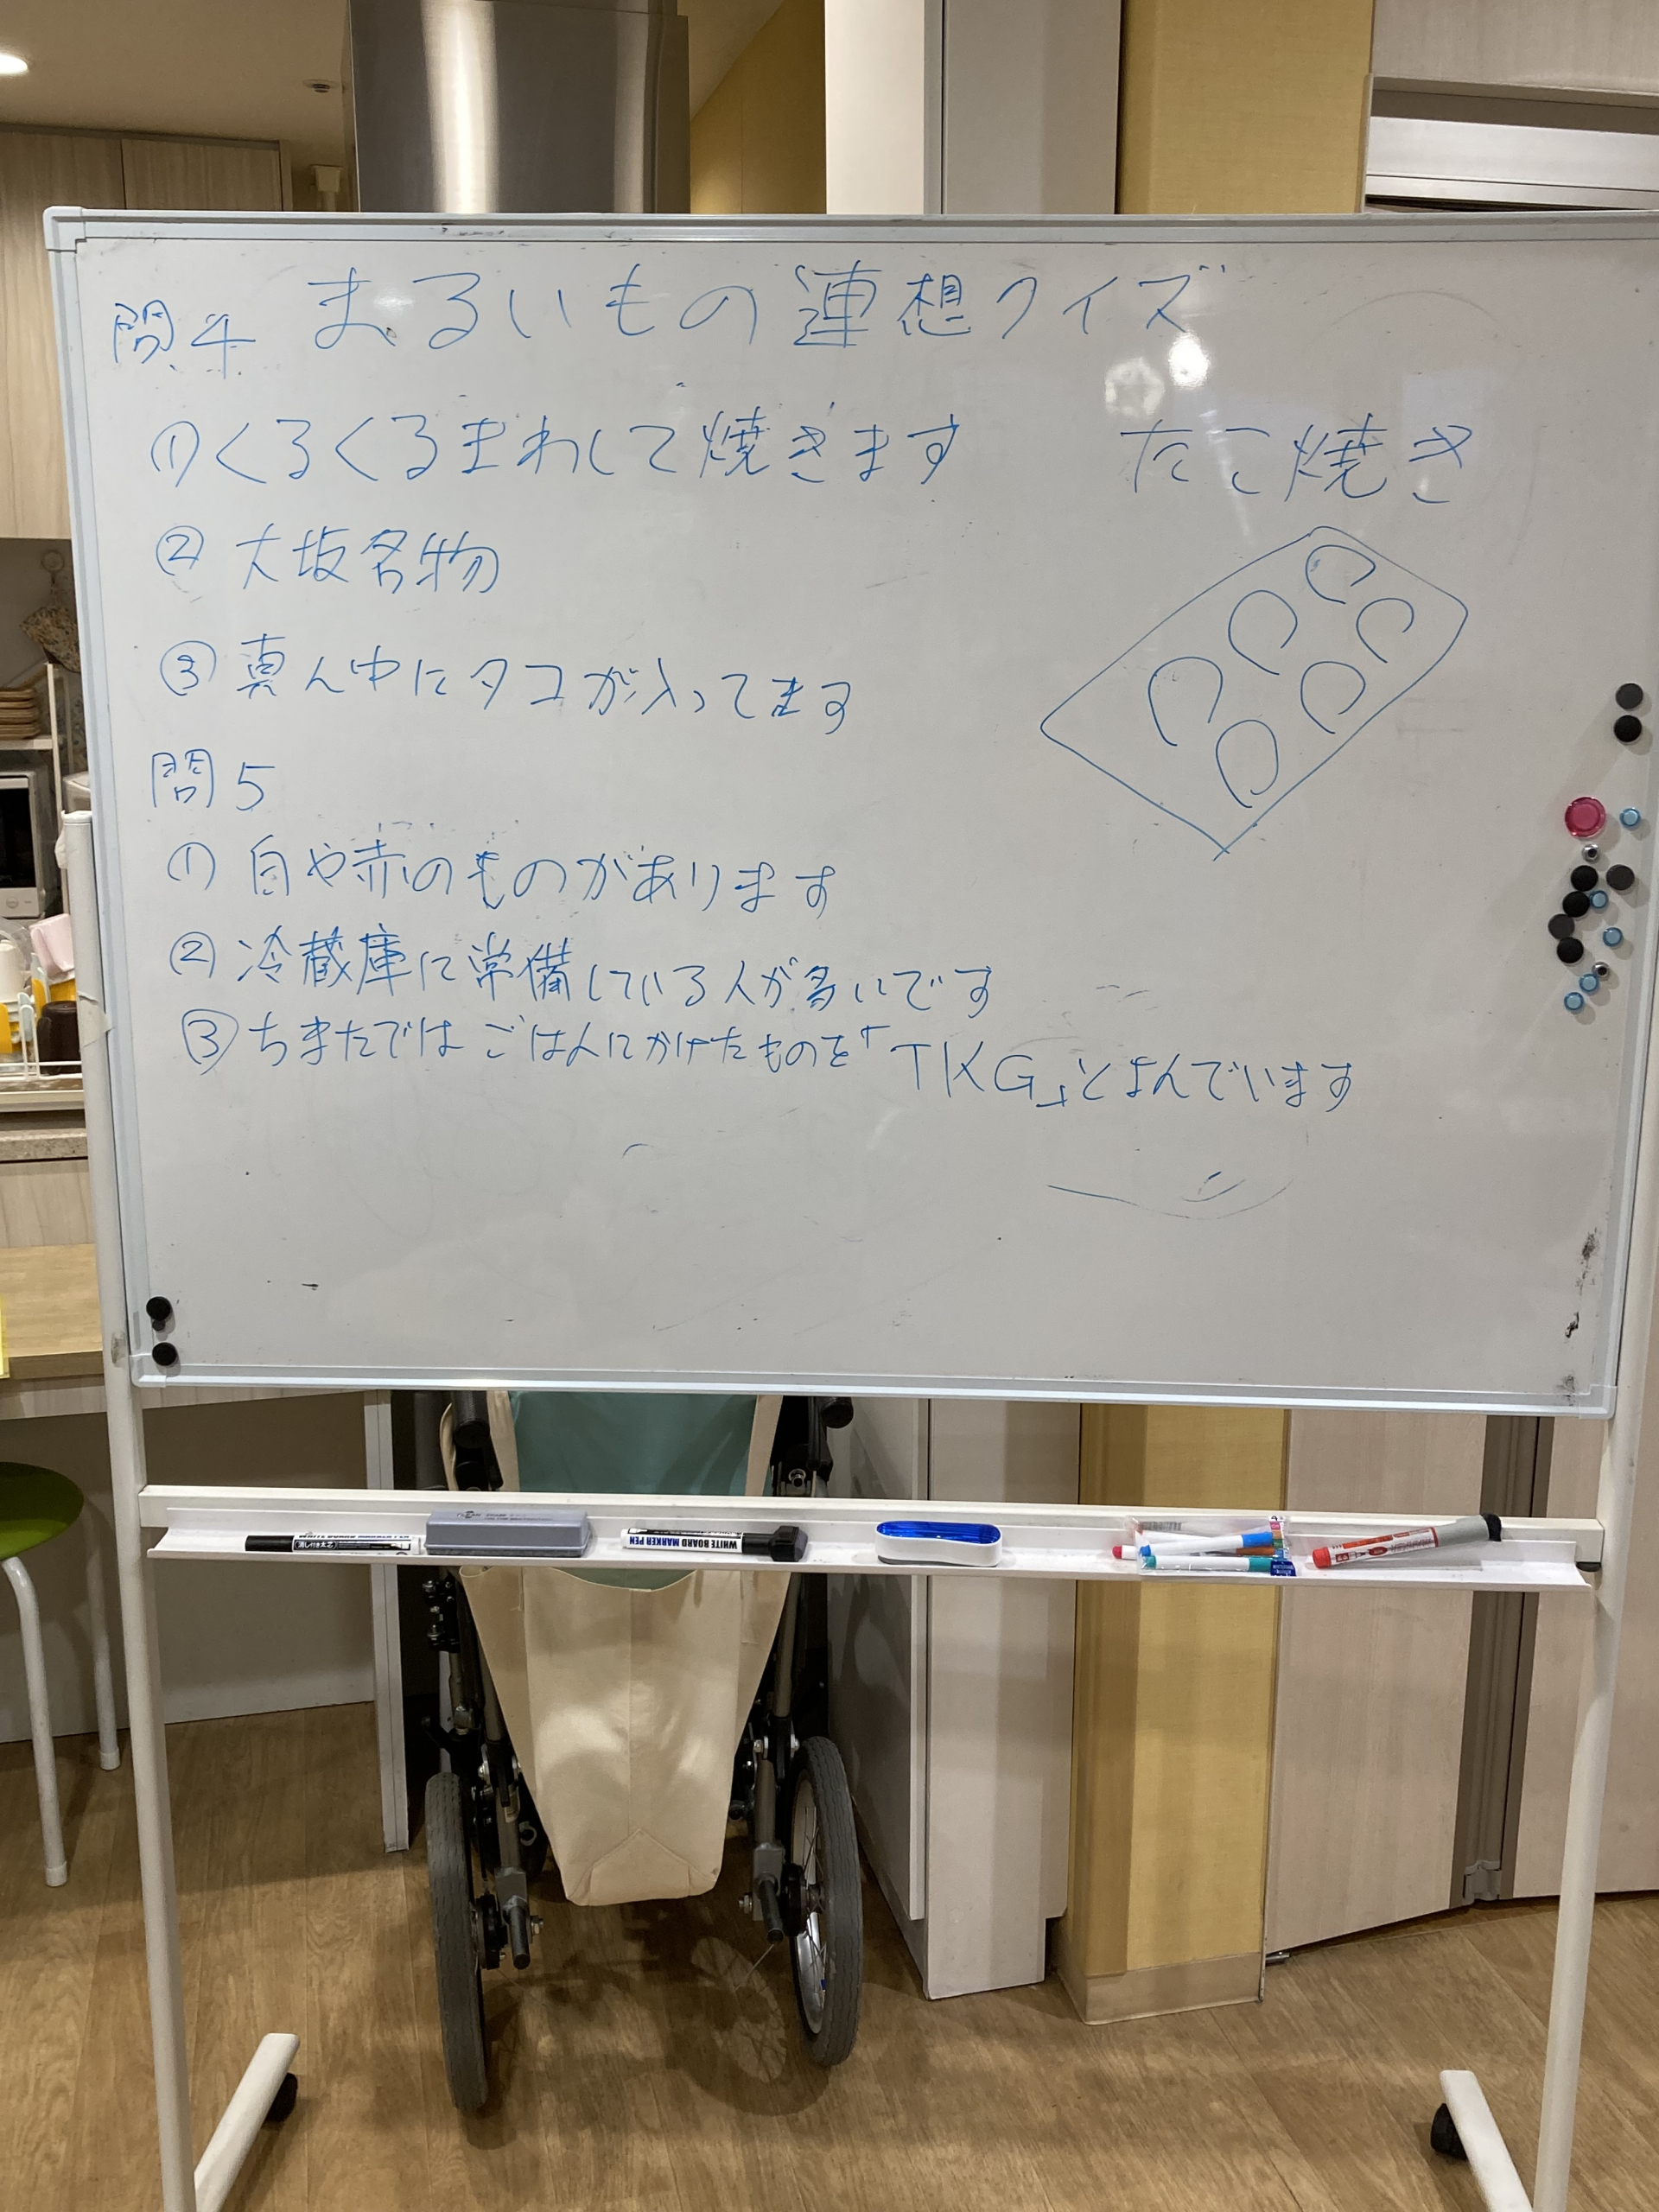 まるいもの連想クイズ
問4
①くるくるまわして焼きます
たこ焼き
②大坂名物
③真ん中にタコが入ってます
問5
①白や赤のものがあります
②冷蔵庫に常備している人が多いです
③ちまたではごはんにかけたものを「TKG」とよんでいます
WHITE BOARD MARKER PEN